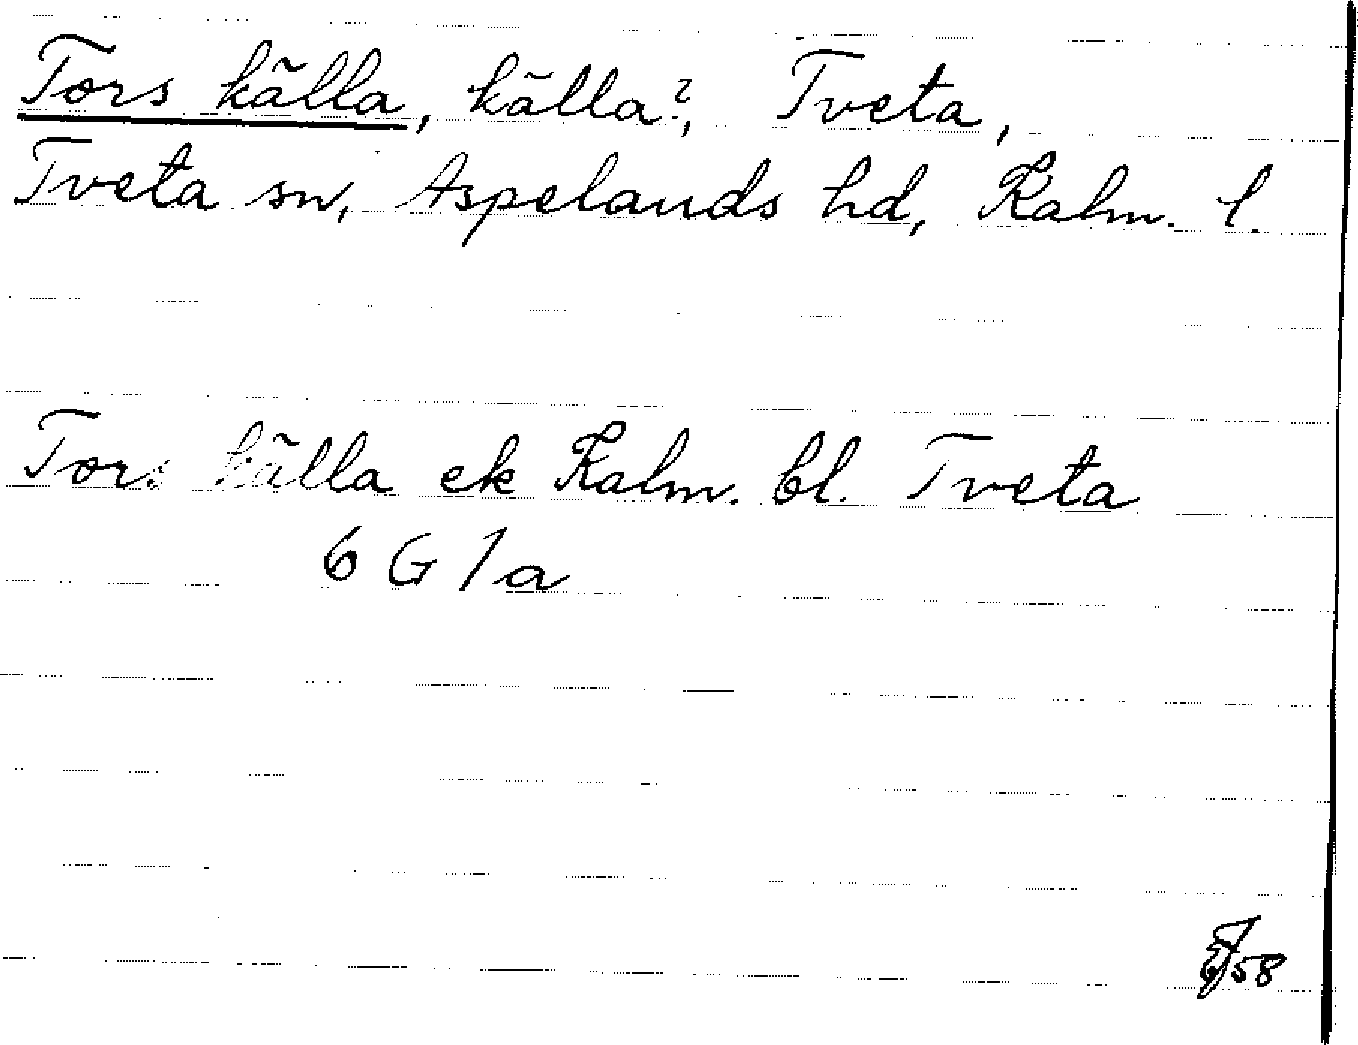 Tors källa, källa?, Tveta,
Tveta sn, Aspelands hd, Kalm. l.
Tors källa ek Kalm. bl. Tveta
6 G 1 a
58